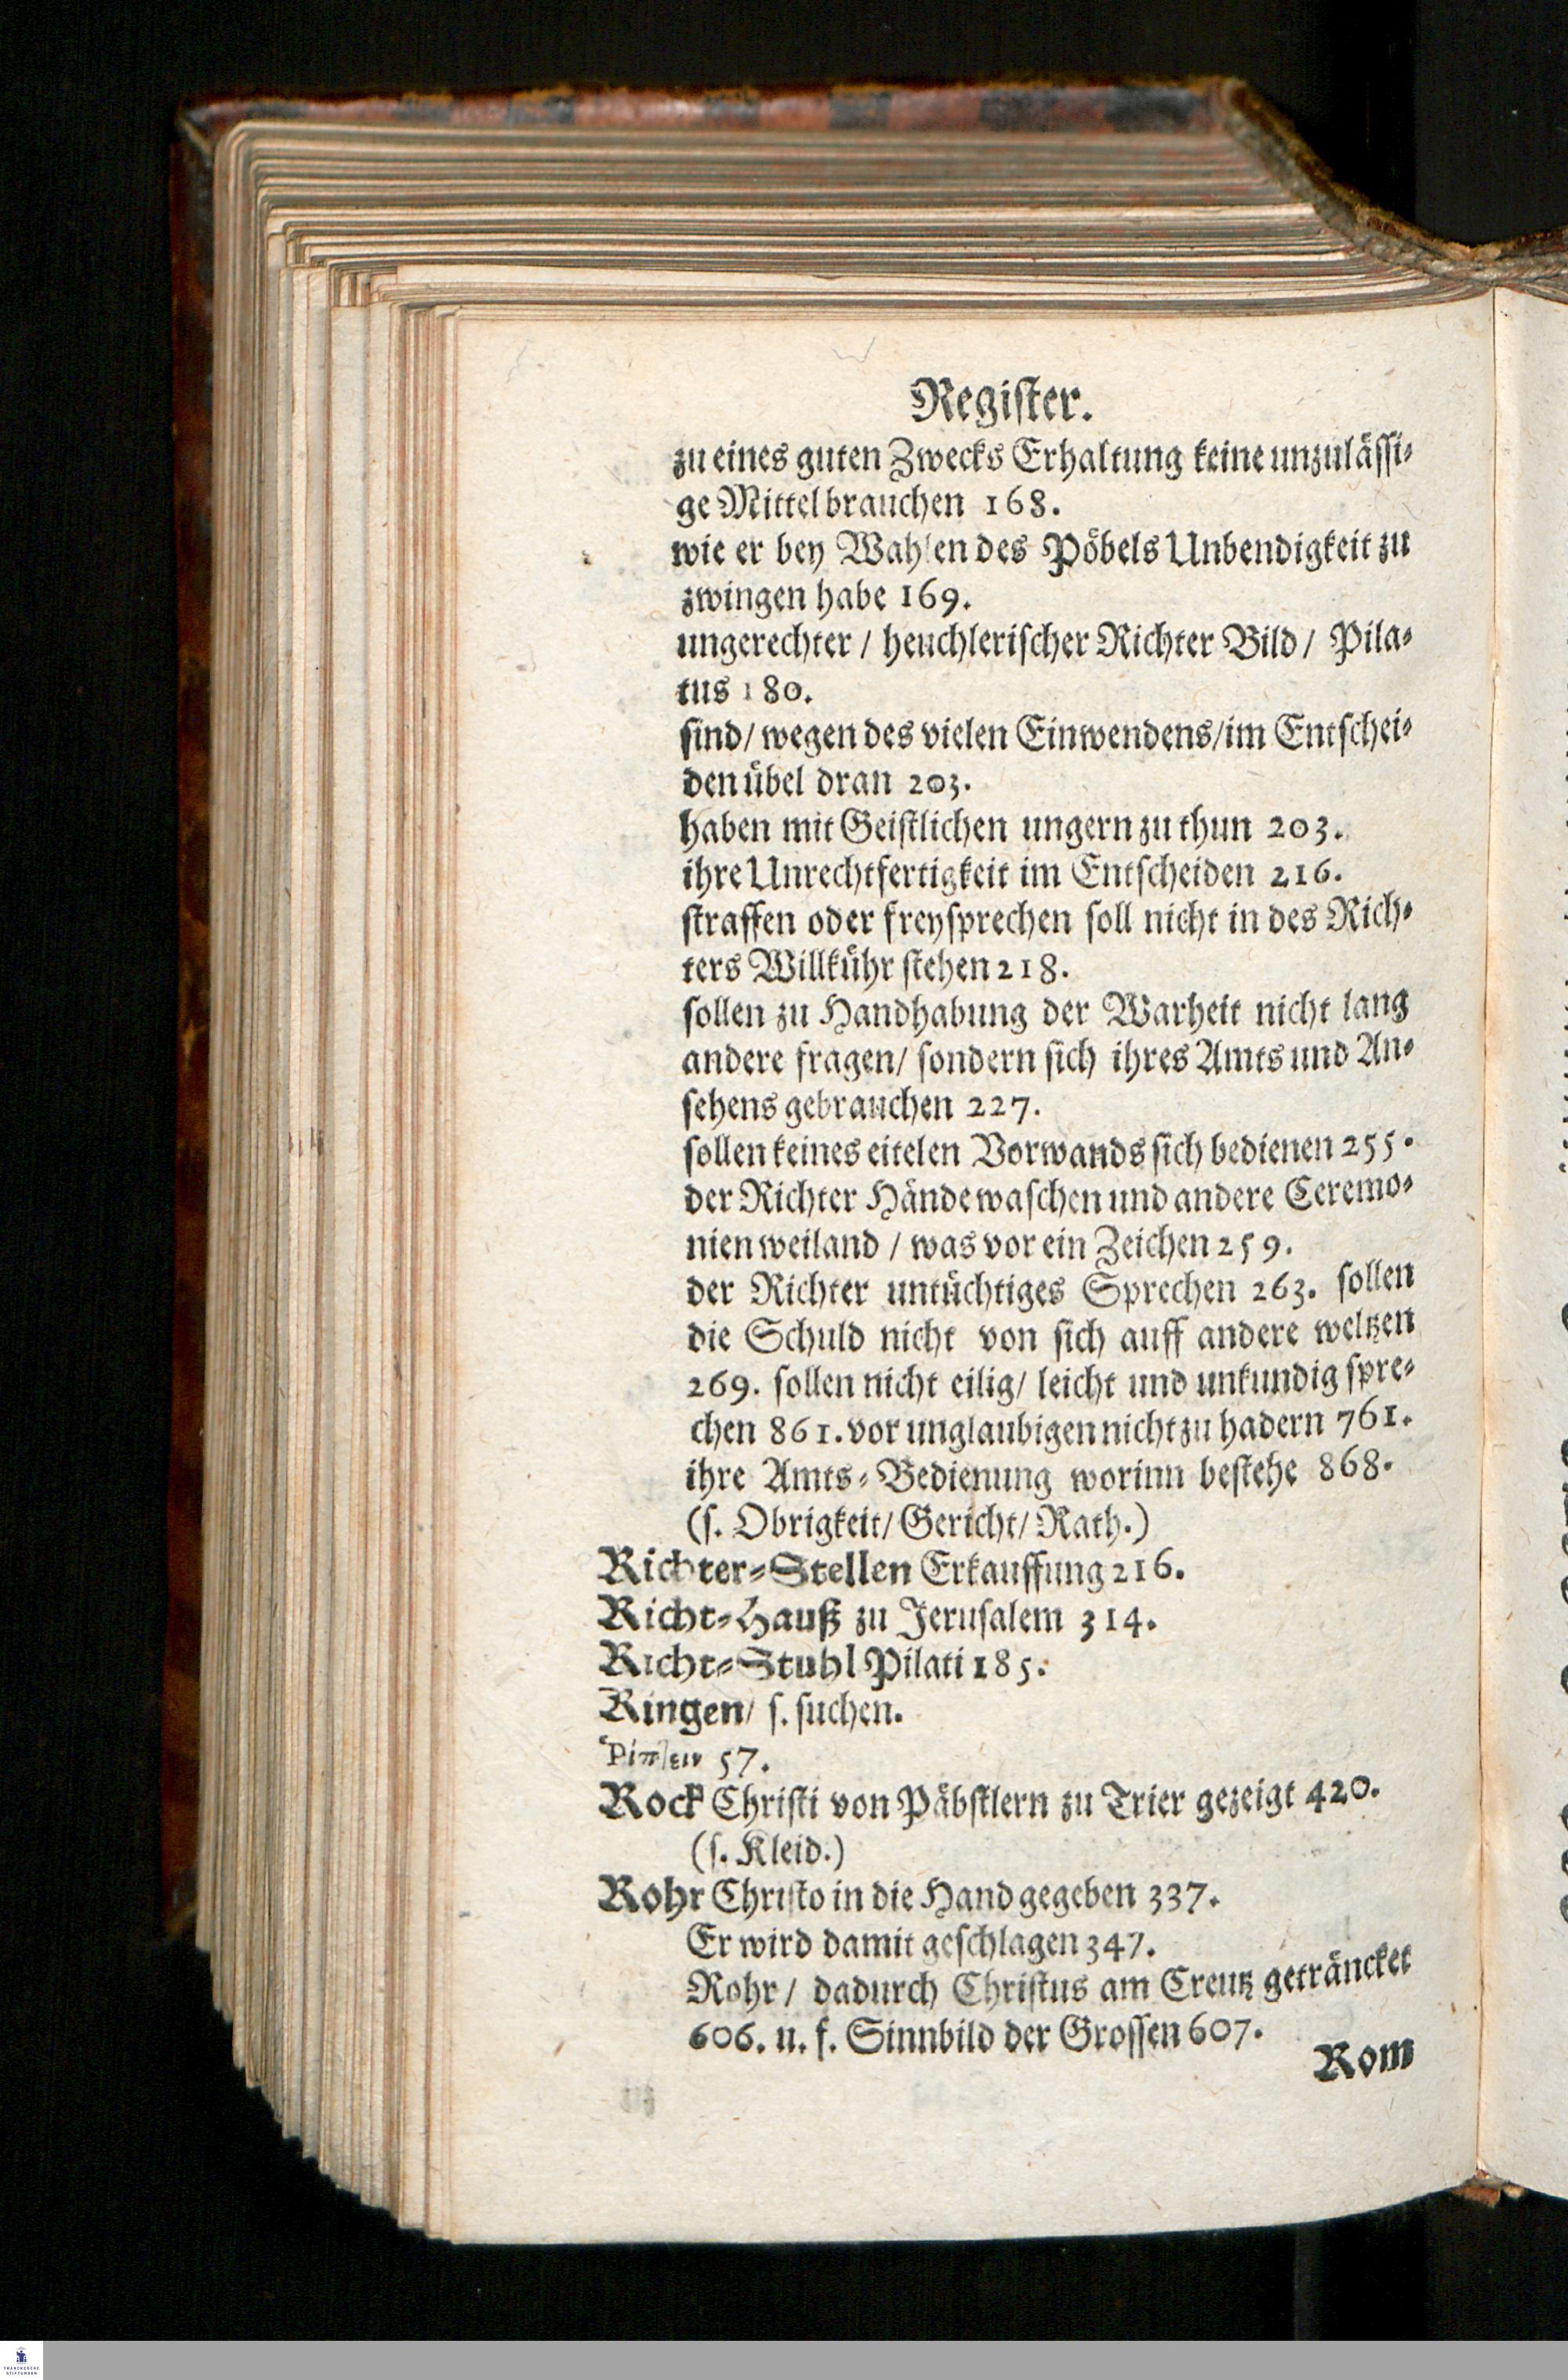 Register.
zu eines guten Zwecks Erhaltung keine unzulässi-
ge Mittel brauchen 168.
wie er bey Wahlen des Pöbels Unbendigkeit zu
zwingen habe 169.
ungerechter / heuchlerischer Richter Bild / Pila-
tus 180.
sind / wegen des vielen Einwendens / im Entschei-
den übel dran 203.
haben mit Geistlichen ungern zu thun 203.
ihre Unrechtfertigkeit im Entscheiden 216.
straffen oder freysprechen soll nicht in des Rich-
ters Willkühr stehen 218.
sollen zu Handhabung der Warheit nicht lang
andere fragen / sondern sich ihres Amts und An-
sehens gebrauchen 227.
sollen keines eitelen Vorwands sich bedienen 255.
der Richter Hände waschen und andere Ceremo-
nien weiland / was vor ein Zeichen 259.
der Richter untüchtiges Sprechen 263. sollen
die Schuld nicht von sich auff andere weltzen
269. sollen nicht eilig / leicht und unkundig spre-
chen 861. vor unglaubigen nicht zu hadern 761.
ihre Amts-Bedienung worinn bestehe 868.
(s. Obrigkeit / Gericht / Rath.)
Richter-Stellen Erkauffung 216.
Richt-Hauß zu Jerusalem 314.
Richt-Stuhl Pilati 185.
Ringen / s. suchen.
57.
Rock Christi von Päbstlern zu Trier gezeigt 420.
(s. Kleid.)
Rohr Christo in die Hand gegeben 337.
Er wird damit geschlagen 347.
Rohr / dadurch Christus am Creutz geträncket
606. u. f. Sinnbild der Grossen 607.
Rom
FRANCKESCHE
STIFTUNGEN